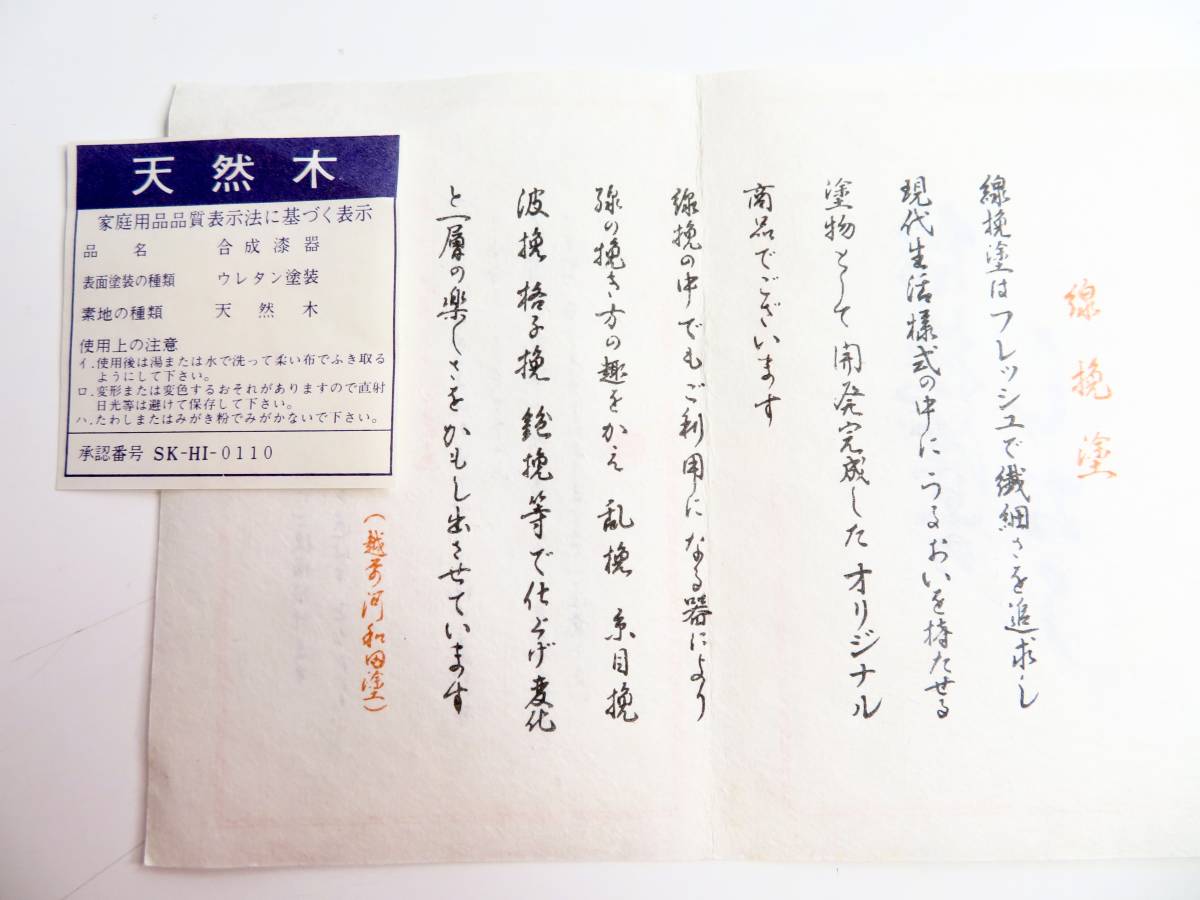 線挽塗
線挽塗はフレッシュで繊細さを追求し
現代生活様式の中にうるおいを持たせる
塗物として開発完成したオリジナル
商品でございます
線挽の中でもご利用になる器により
線の挽き方の趣をかえ 乱挽 糸目挽
波挽 格子挽 鉋挽等で仕上げ変化
と一層の楽しさをかもし出させています
(越前河和田塗)
天然木
家庭用品品質表示法に基づく表示
品名 合成漆器
表面塗装の種類 ウレタン塗装
素地の種類 天然木
使用上の注意
イ.使用後は湯または水で洗って柔い布でふき取る
ようにして下さい。
ロ.変形または変色するおそれがありますので直射
日光等は避けて保存して下さい。
ハ.たわしまたはみがき粉でみがかないで下さい。
承認番号 SK-HI-0110